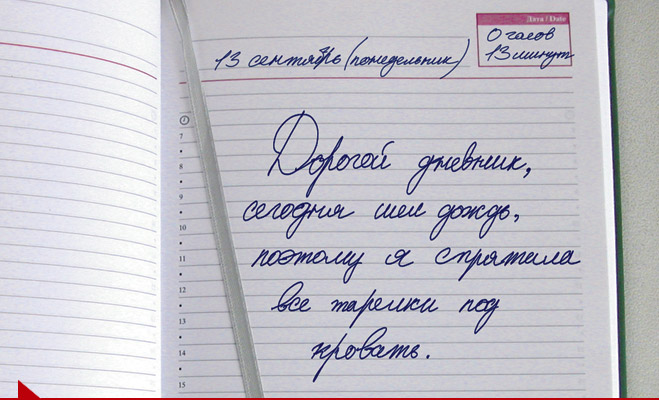 Дата / Date
0 часов
13 минут
13 сентябрь (понедельник)
Дорогой дневник,
сегодня шел дождь,
поэтому я спрятала
все тарелки под
кровать.
7
8
9
10
11
12
13
14
15